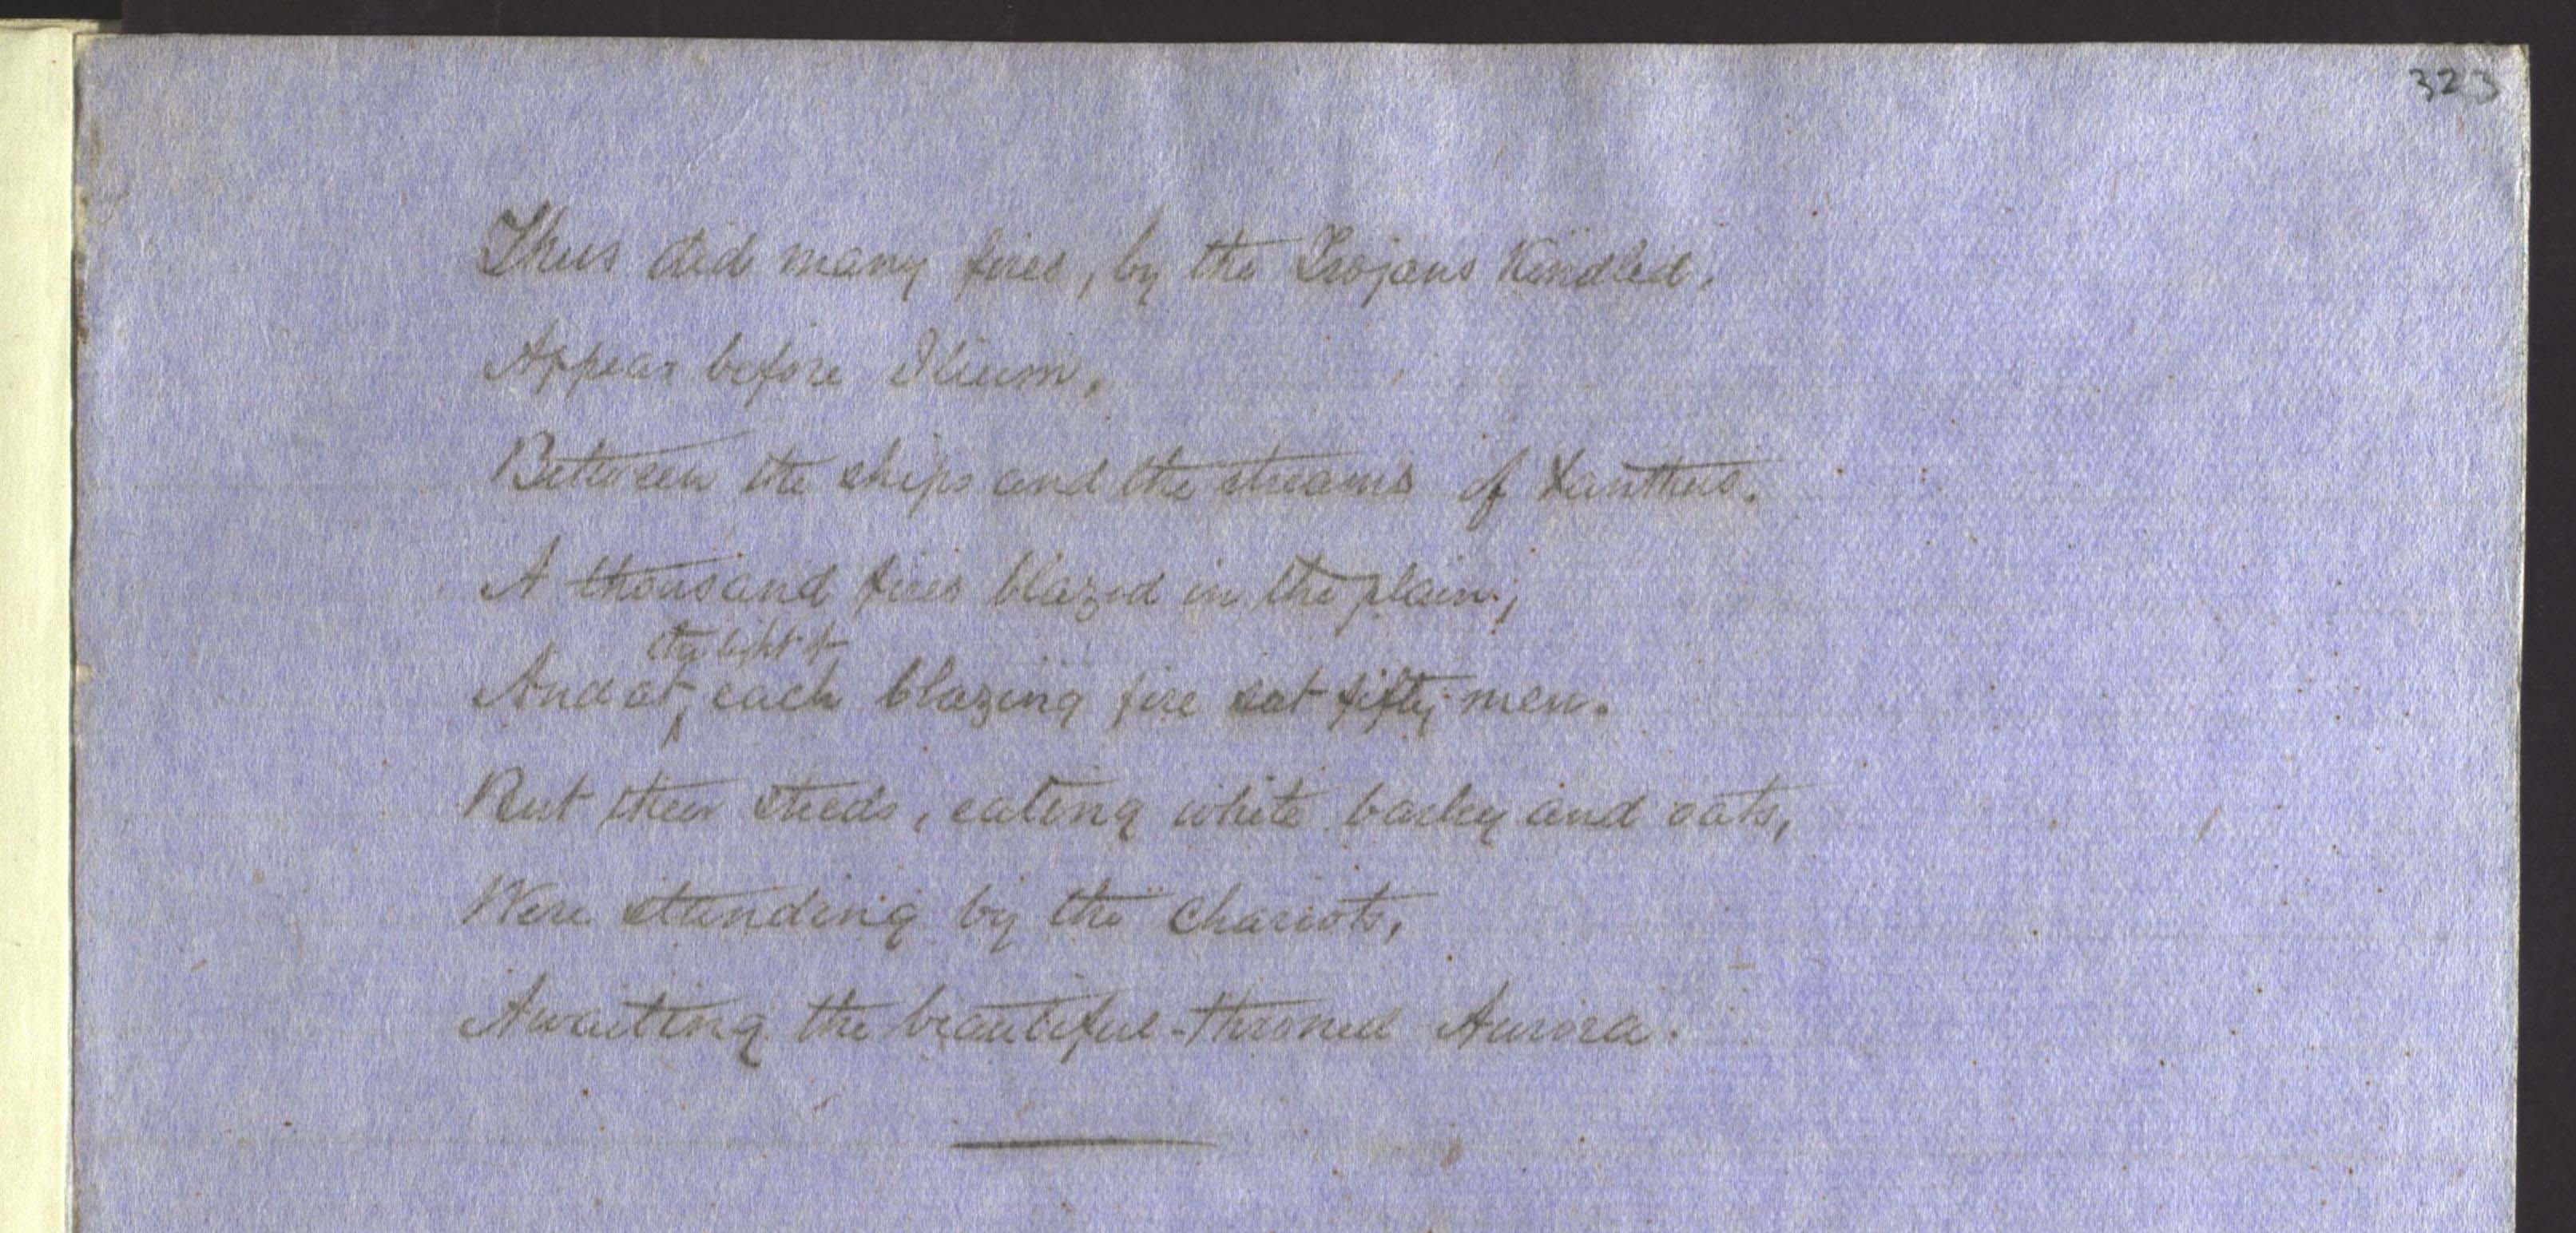 323
Thus did many fires, by the Trojans kindled,
Appear before Ilium,
Between the ships and the streams of Xanthus.
A thousand fires blazed in the plain;
the light of
And at ‸ each blazing fire sat fifty men.
But their steeds, eating white barley and oats,
Were standing by the chariots,
Awaiting the beautiful-throned Aurora.